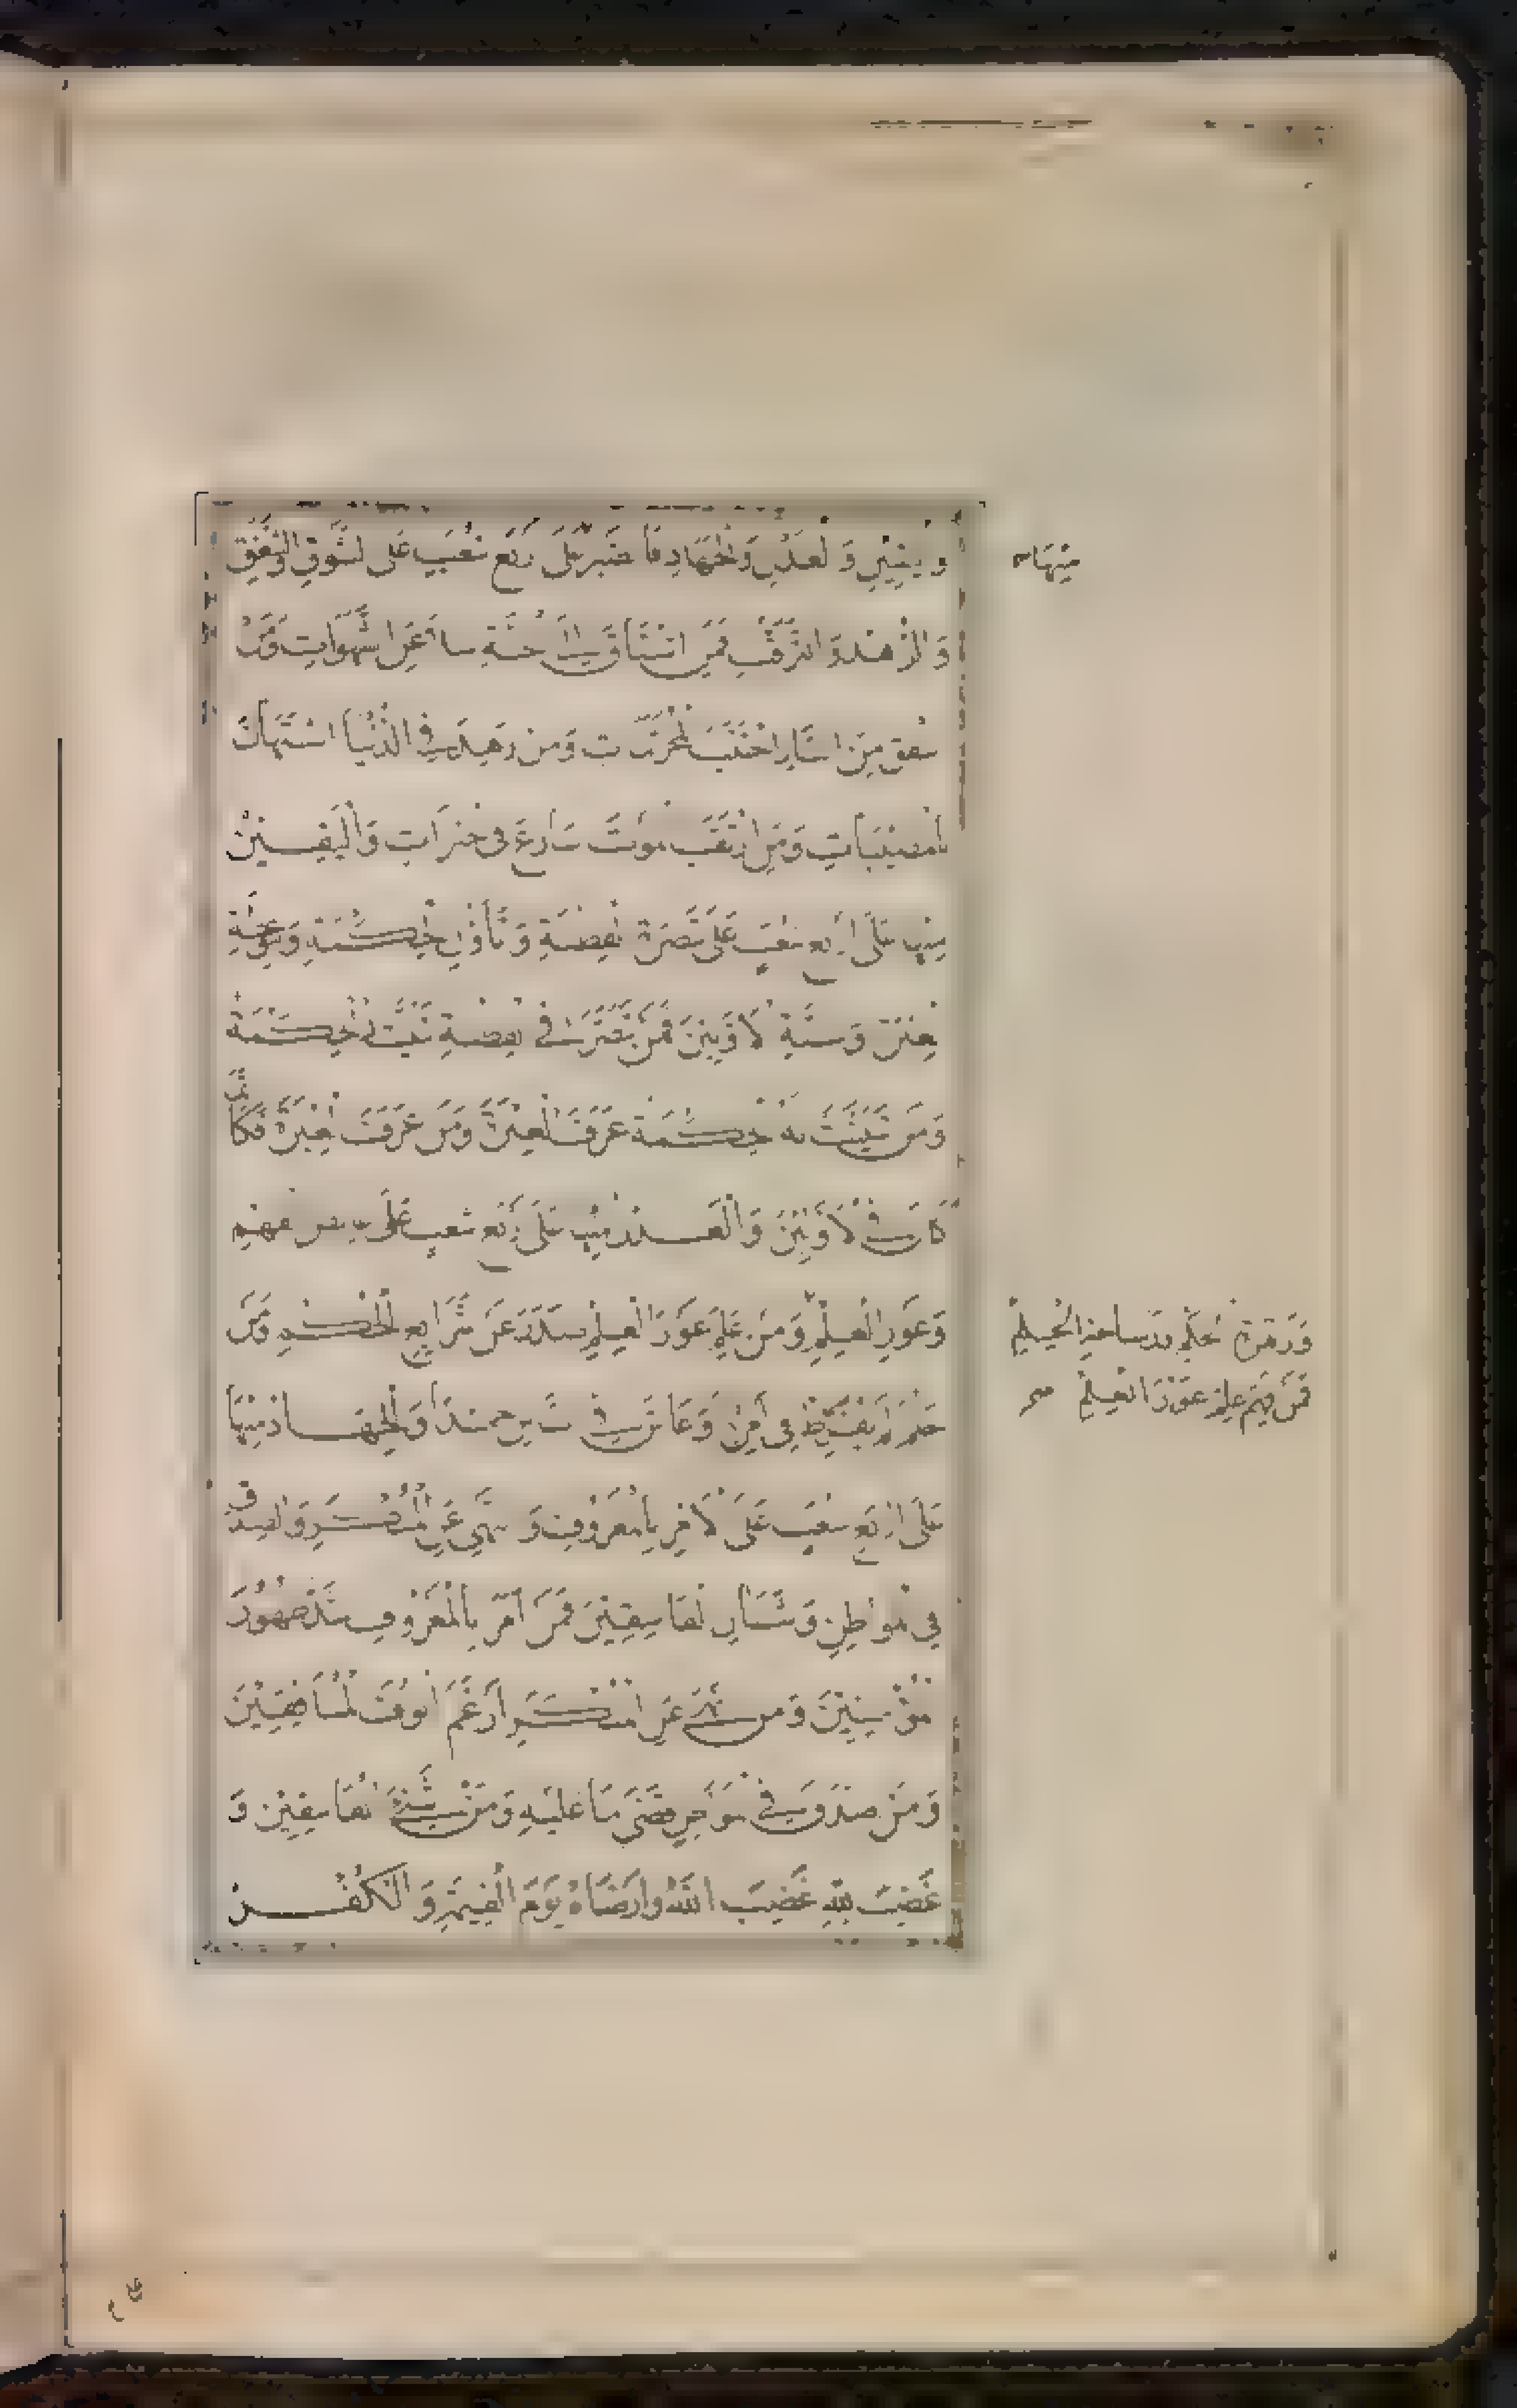 واليقين والعدل والجهاد فالصبر على اربع شعب على الشوق والشفق
والزهد والترقب فمن اشتاق الى الجنة سلا عن الشهوات ومن
اشفق من النار اجتنب المحرمات ومن زهد في الدنيا استهان
بالمصيبات ومن ارتقب الموت سارع في الخيرات واليقين
منها على اربع شعب على تبصرة الفطنة وتأول الحكمة وموعظة
العبرة وسنة الاولين فمن تبصر في الفطنة تبينت له الحكمة
ومن تبينت له الحكمة عرف العبرة ومن عرف العبرة فكأنما
كان في الاولين والعدل منها على اربع شعب على غايص الفهم
وغور العلم ومن علم غور العلم صدر عن شرايع الحكم ومن
حلم لم يفرط في امره وعاش في الناس حميدا والجهاد منها
على اربع شعب على الامر بالمعروف والنهي عن المنكر والصدق
في المواطن وشنآن الفاسقين فمن امر بالمعروف شد ظهور
المؤمنين ومن نهى عن المنكر ارغم انوف المنافقين
ومن صدق في المواطن قضى ما عليه ومن شنئ الفاسقين و
غضب لله غضب الله وارضاه يوم القيمة والكفر
منها
وزهرة الحكم ورساخة الحلم
فمن فهم علم غور العلم